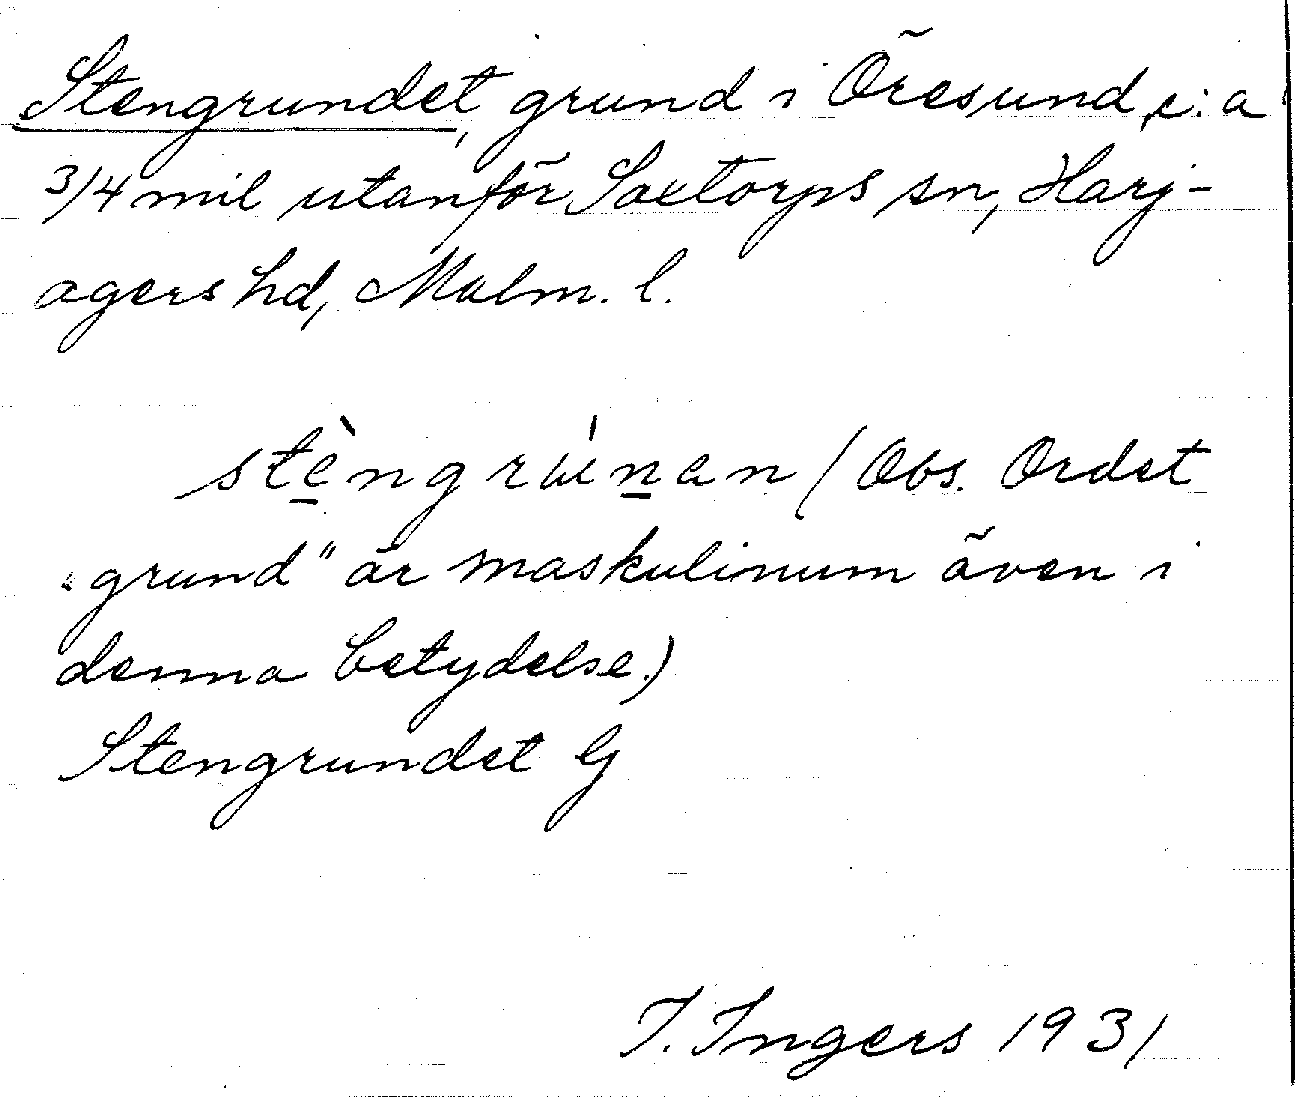 Stengrundet, grund i Öresund, c:a
3/4 mil utanför Saxtorps sn, Harj-
agers hd, Malm. l.
stèngrúnen (Obs. Ordet
"grund" är maskulinum även i
denna betydelse.)
Stengrundet G
I. Ingers 1931